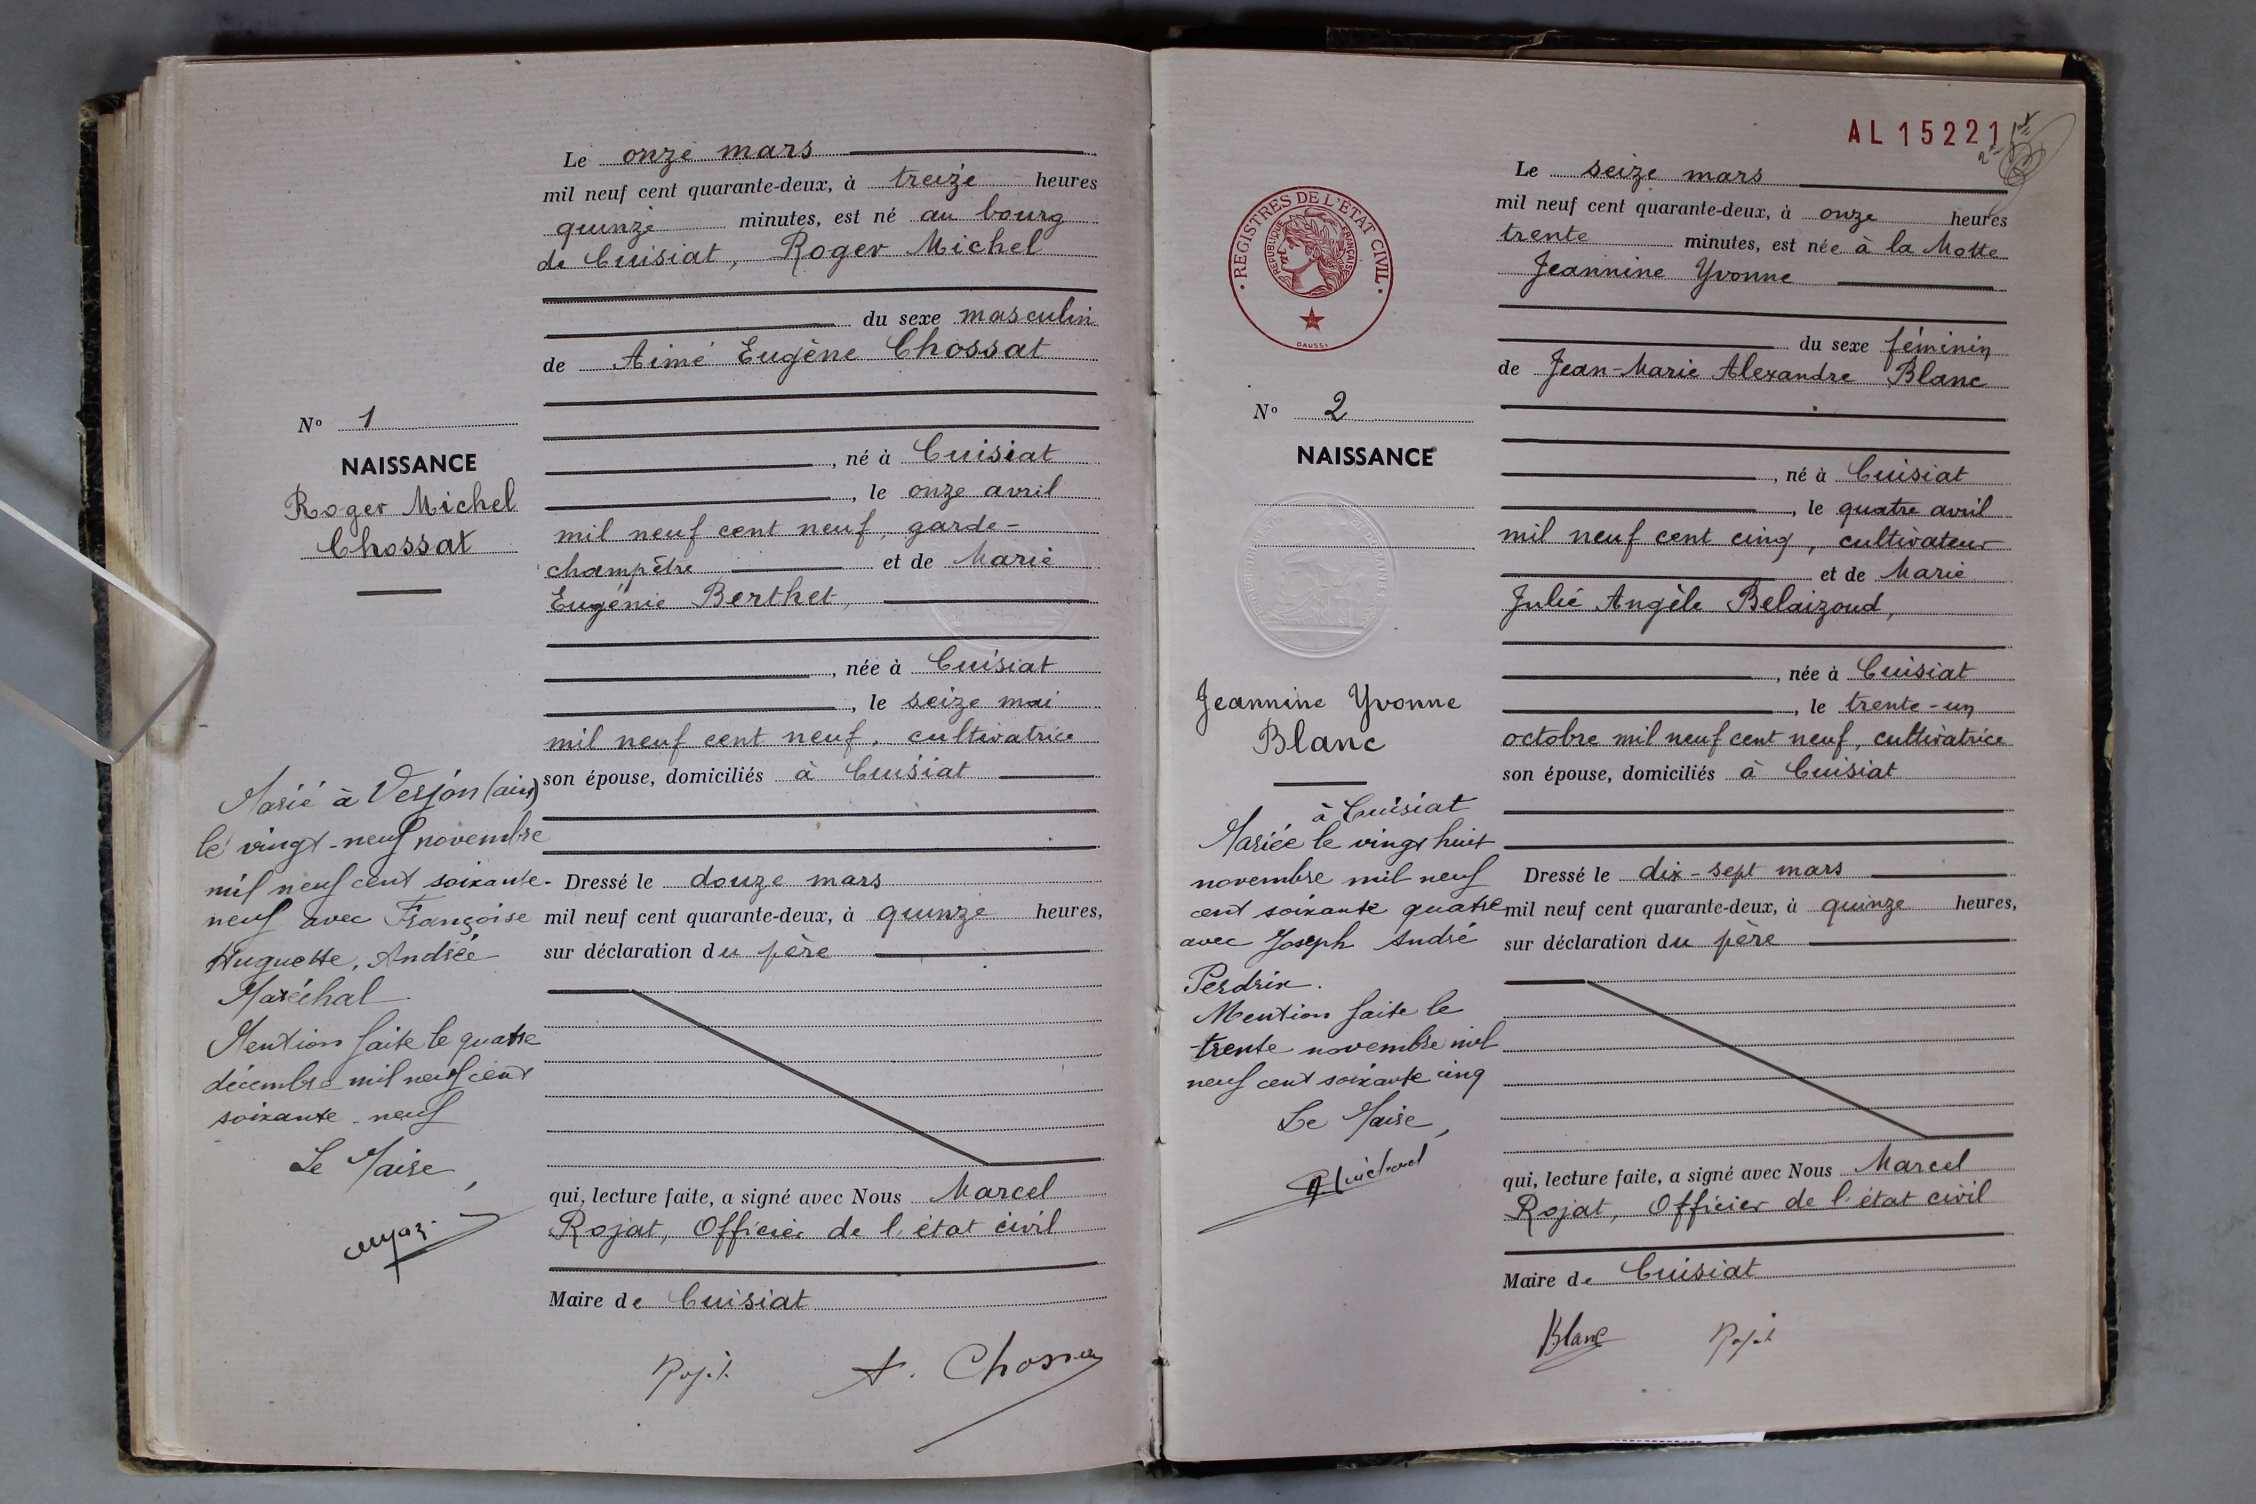 Le onze mars
mil neuf cent quarante-deux, à treize heures
quinze minutes, est né au bourg
de Cuisiat, Roger Michel
du sexe masculin
de Aimé Eugène Chossat
N° 1
NAISSANCE
Roger Michel
Chossat
, né à Cuisiat
, le onze avril
mil neuf cent neuf, garde-
champêtre et de Marie
Eugénie Berthet,
, née à Cuisiat
, le seize mai
mil neuf cent neuf, cultivatrice
son épouse, domiciliés à Cuisiat
Marié à Verjon (ain)
le vingt-neuf novembre
mil neuf cent soixante-
neuf avec Françoise
Huguette, Andrée
Maréchal.
Mention faite le quatre
décembre mil neuf cent
soixante-neuf
Le Maire,
Dressé le douze mars
mil neuf cent quarante-deux, à quinze heures,
sur déclaration du père
qui, lecture faite, a signé avec Nous Marcel
Rojat, Officier de l'état civil
Maire de Cuisiat
Rojat
A. Chossat
AL 15221
REGISTRES DE L'ETAT CIVIL
REPUBLIQUE FRANÇAISE
DAUSSI
Le seize mars
mil neuf cent quarante-deux, à onze heures
trente minutes, est née à la Motte
Jeannine Yvonne
du sexe féminin
de Jean-Marie Alexandre Blanc
N° 2
NAISSANCE
Jeannine Yvonne
Blanc
, né à Cuisiat
, le quatre avril
mil neuf cent cinq, cultivateur
et de Marie
Julie Angèle Belaizoud,
, née à Cuisiat
, le trente-un
octobre mil neuf cent neuf, cultivatrice
son épouse, domiciliés à Cuisiat
à Cuisiat
Mariée le vingt huit
novembre mil neuf
cent soixante quatre
avec Joseph André
Perdrix.
Mention faite le
trente novembre mil
neuf cent soixante cinq
Le Maire,
Dressé le dix-sept mars
mil neuf cent quarante-deux, à quinze heures,
sur déclaration du père
qui, lecture faite, a signé avec Nous Marcel
Rojat, Officier de l'état civil
Maire de Cuisiat
Blanc
Rojat